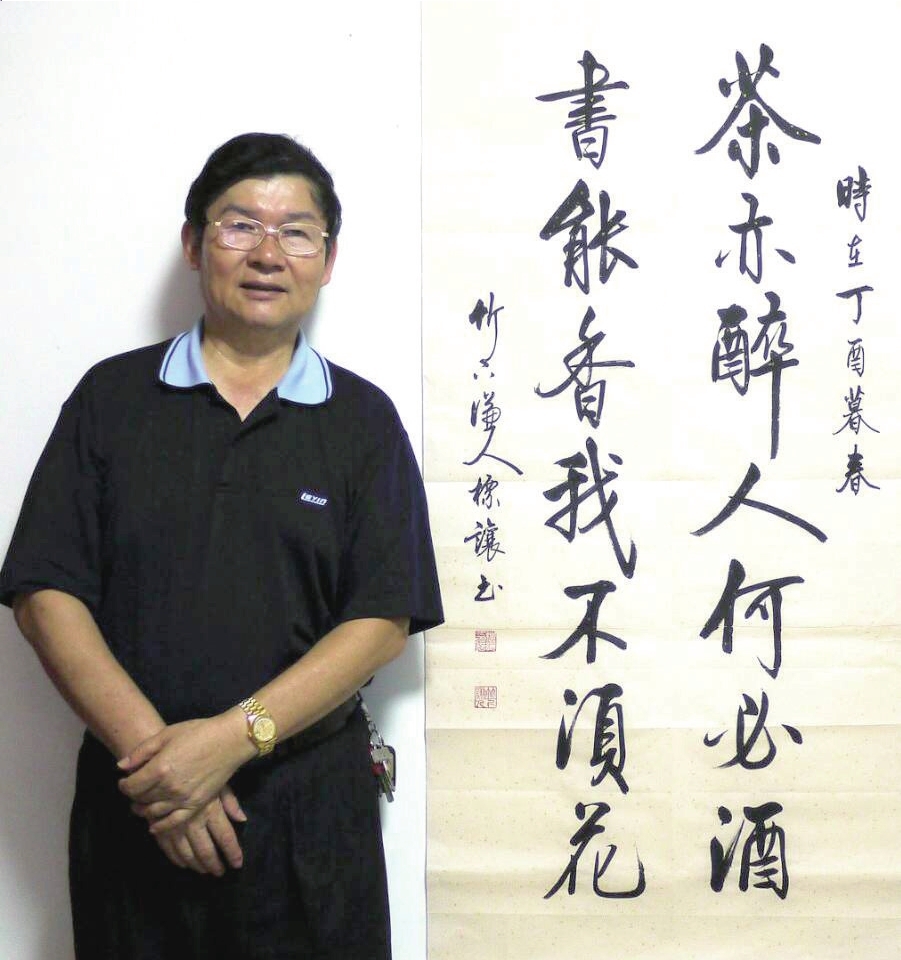 時在丁酉暮春
茶亦醉人何必酒
書能香我不須花
竹下謙人標讓书